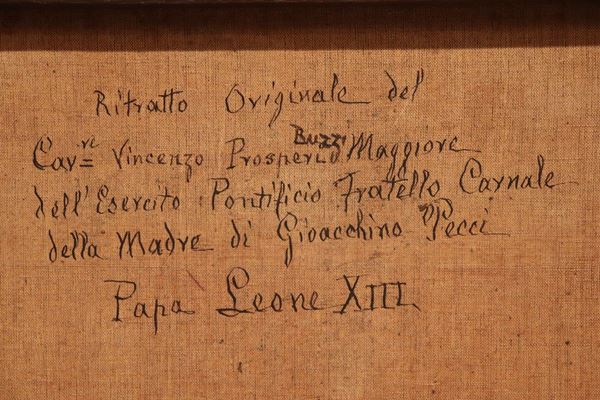 Ritratto Originale del
Cav=re Vincenzo Prosperi Buzzi Maggiore
dell'Esercito Pontificio Fratello Carnale
della Madre di Gioacchino Pecci
Papa Leone XIII